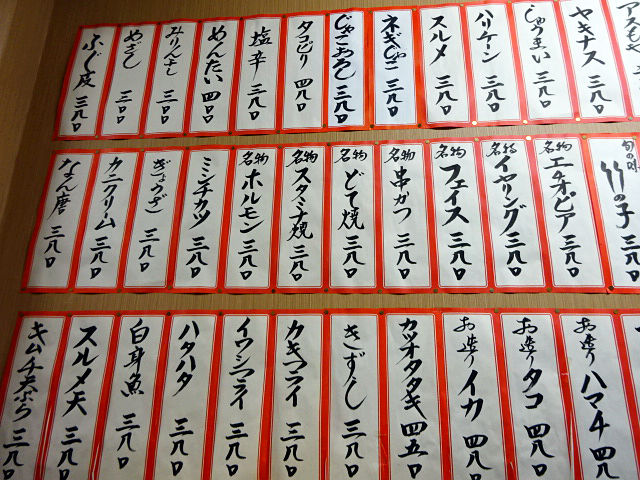 ヤキナス 三八〇
しゅうまい 三八〇
ハリケーン 三八〇
スルメ 三八〇
ネギじゃこ 三八〇
じゃこおろし 三八〇
タコピリ 四八〇
塩辛 三八〇
めんたい 四〇〇
みりん干し 三〇〇
めざし 三〇〇
ふぐ皮 三八〇
旬の味 竹の子 三八〇
名物 エチオピア 三八〇
名物 イヤリング 三八〇
名物 フェイス 三八〇
名物 串かつ 三八〇
名物 どて焼 三八〇
名物 スタミナ焼 三八〇
名物 ホルモン 三八〇
ミンチカツ 三八〇
ぎょうざ 三八〇
カニクリーム 三八〇
なん唐 三八〇
お造り ハマチ 四八〇
お造り タコ 四八〇
お造り イカ 四八〇
カツオタタキ 四五〇
きずし 三八〇
カキフライ 三八〇
イワシフライ 三八〇
ハタハタ 三八〇
白身魚 三八〇
スルメ天 三八〇
キムチ天ぷら 三八〇